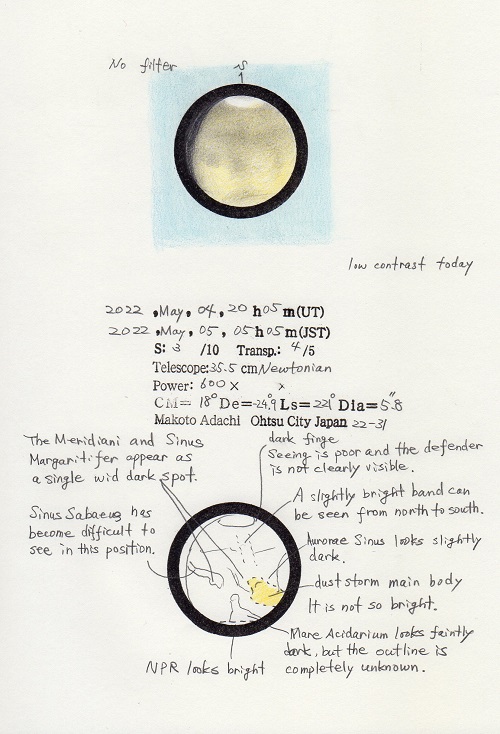 No filter
S
low contrast today
2022, May, 04, 20 h 05 m (UT)
2022, May, 05, 05 h 05 m (JST)
S: 3 /10 Transp.: 4/5
Telescope: 35.5 cm Newtonian
Power: 600 x
CM= 18° De=-24.9 Ls= 221° Dia= 5".8
Makoto Adachi Ohtsu City Japan 22-31
The Meridiani and Sinus
Margaritifer appear as
a single wid dark spot.
dark finge
Seeing is poor and the defender
is not clearly visible.
A slightly bright band can
be seen from north to south.
Sinus Sabaeus has
become difficult to
see in this position.
Aurorae Sinus looks slightly
dark.
dust storm main body
It is not so bright.
Mare Acidarium looks faintly
dark, but the outline is
completely unknown.
NPR looks bright